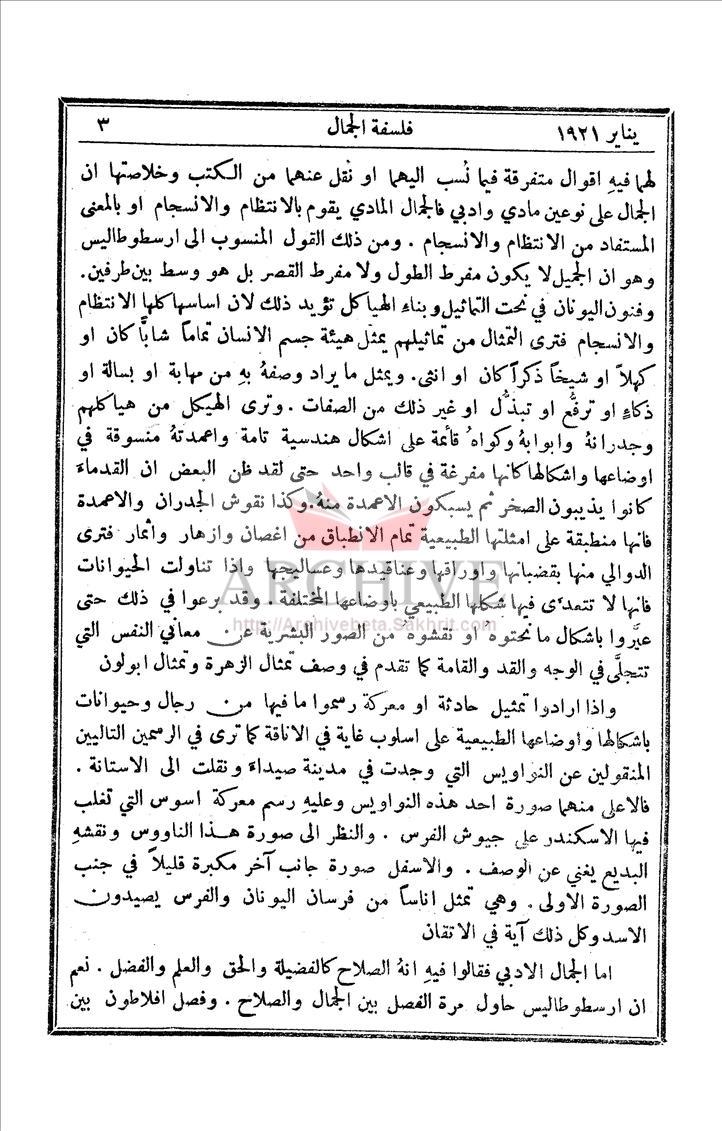 يناير ١٩٢١ فلسفة الجمال ٣
لهما فيهِ اقوال متفرقة فيما نُسب اليهما او نُقل عنهما من الكتب وخلاصتها ان
الجمال على نوعين مادي وادبي فالجمال المادي يقوم بالانتظام والانسجام او بالمعنى
المستفاد من الانتظام والانسجام . ومن ذلك القول المنسوب الى ارسطوطاليس
وهو ان الجميل لا يكون مفرط الطول ولا مفرط القصر بل هو وسط بين طرفين.
وفنون اليونان في نحت التماثيل وبناء الهياكل تؤيد ذلك لان اساسها كلها الانتظام
والانسجام فترى التمثال من تماثيلهم يمثل هيئة جسم الانسان تماماً شابّاً كان او
كهلاً او شيخاً ذكراً كان او انثى. ويمثل ما يراد وصفهُ بهِ من مهابة او بسالة او
ذكاءٍ او ترفُّع او تبذُّل او غير ذلك من الصفات . وترى الهيكل من هياكلهم
وجدرانهُ وابوابهُ وكواهُ قائمة على اشكال هندسية تامة واعمدتهُ منسوقة في
اوضاعها واشكالها كانها مفرغة في قالب واحد حتى لقد ظن البعض ان القدماء
كانوا يذيبون الصخر ثم يسبكون الاعمدة منهُ. وكذا نقوش الجدران والاعمدة
فانها منطبقة على امثلتها الطبيعية تمام الانطباق من اغصان وازهار واثمار فترى
الدوالي منها بقضبانها واوراقها وعناقيدها وعساليجها واذا تناولت الحيوانات
فانها لا تتعدَّى فيها شكلها الطبيعي باوضاعها المختلفة . وقد برعوا في ذلك حتى
عبَّروا باشكال ما نحتوهُ او نقشوهُ من الصور البشرية عن معاني النفس التي
تتجلَّى في الوجه والقد والقامة كما تقدم في وصف تمثال الزهرة وتمثال ابولون
واذا ارادوا تمثيل حادثة او معركة رسموا ما فيها من رجال وحيوانات
باشكالها واوضاعها الطبيعية على اسلوب غاية في الاناقة كما ترى في الرسمين التاليين
المنقولين عن النواويس التي وجدت في مدينة صيداء ونقلت الى الاستانة .
فالاعلى منهما صورة احد هذه النواويس وعليهِ رسم معركة اسوس التي تغلب
فيها الاسكندر على جيوش الفرس . والنظر الى صورة هذا الناووس ونقشهِ
البديع يغني عن الوصف . والاسفل صورة جانب آخر مكبرة قليلاً في جنب
الصورة الاولى . وهي تمثل اناساً من فرسان اليونان والفرس يصيدون
الاسد وكل ذلك آية في الاتقان
اما الجمال الادبي فقالوا فيهِ انهُ الصلاح كالفضيلة والحق والعلم والفضل . نعم
ان ارسطوطاليس حاول مرة الفصل بين الجمال والصلاح . وفصل افلاطون بين
ARCHIVE
http://Archivebeta.Sakhrit.com